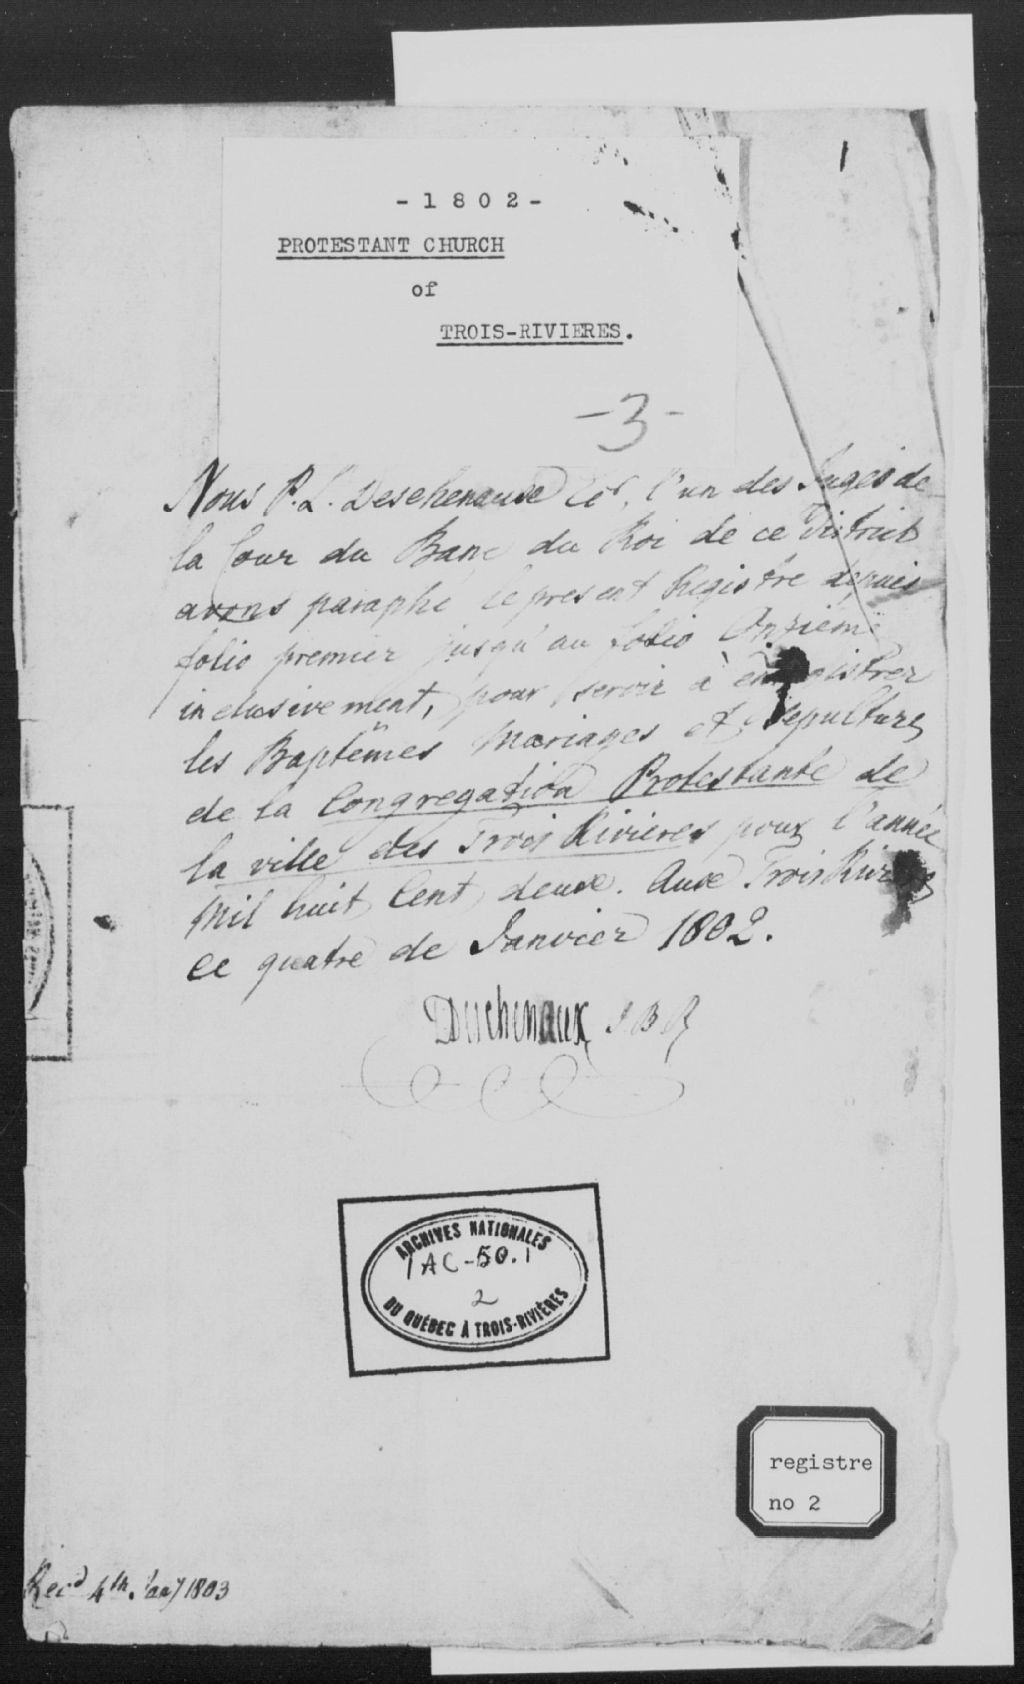 1
- 1 8 0 2 -
PROTESTANT CHURCH
of
TROIS-RIVIERES.
-3-
Nous P. L. Deschenaux l'un des Juges de
la Cour du Banc du Roi de ce District
avons paraphé le present Registre depuis
folio premier jusqu'au folio Onzième
inclusivement, pour servir à enregistrer
les Baptêmes Mariages et Sepultures
de la Congregation Protestante de
la ville des Trois Rivieres pour l'année
Mil huit Cent deux. Aux Trois Rivieres
ce quatre de Janvier 1802.
Deschenaux J B R
ARCHIVES NATIONALES
1AC-50.1
2
DU QUÉBEC À TROIS-RIVIÈRES
registre
no 2
Recd 4th. Jany 1803